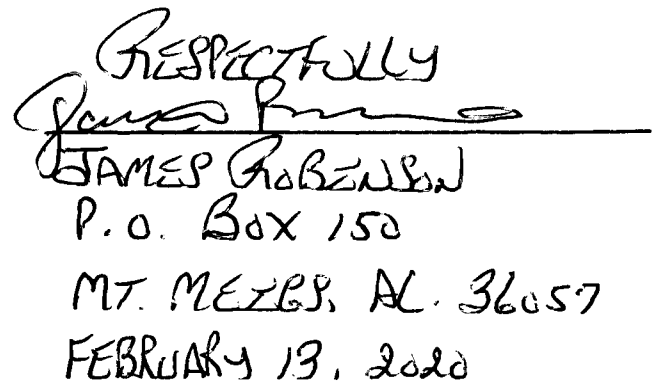 RESPECTFULLY
James R
JAMES ROBENSON
P.O. BOX 150
MT. MEIGS, AL. 36057
FEBRUARY 13, 2020